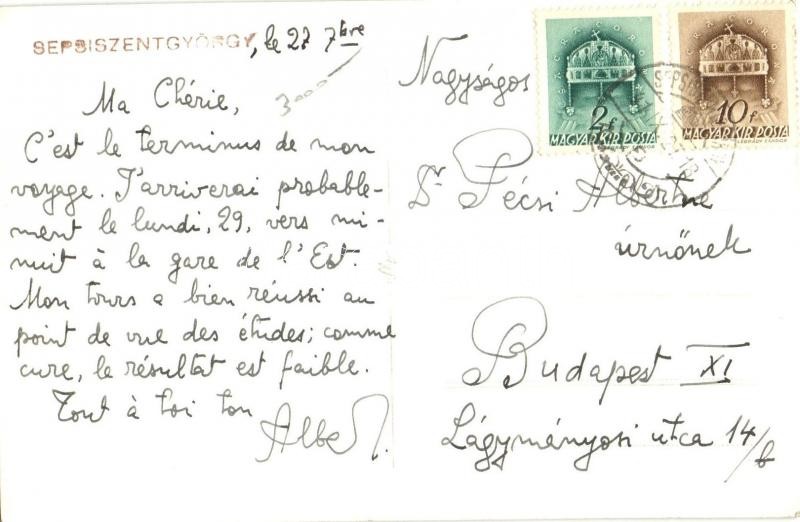 SEPSISZENTGYÖRGY, le 27 7bre
3000
Ma Chérie,
C'est le terminus de mon
voyage. J'arriverai probable-
ment le lundi, 29, vers mi-
nuit à la gare de l'Est.
Mon tours a bien réussi au
point de vue des études; comme
cure, le résultat est faible.
Tout à toi ton
Albert.
Nagyságos
Dr Pécsi Albertné
úrnőnek
Budapest XI
Lágymányosi utca 14/b
2f
MAGYAR KIR. POSTA
10f
MAGYAR KIR. POSTA